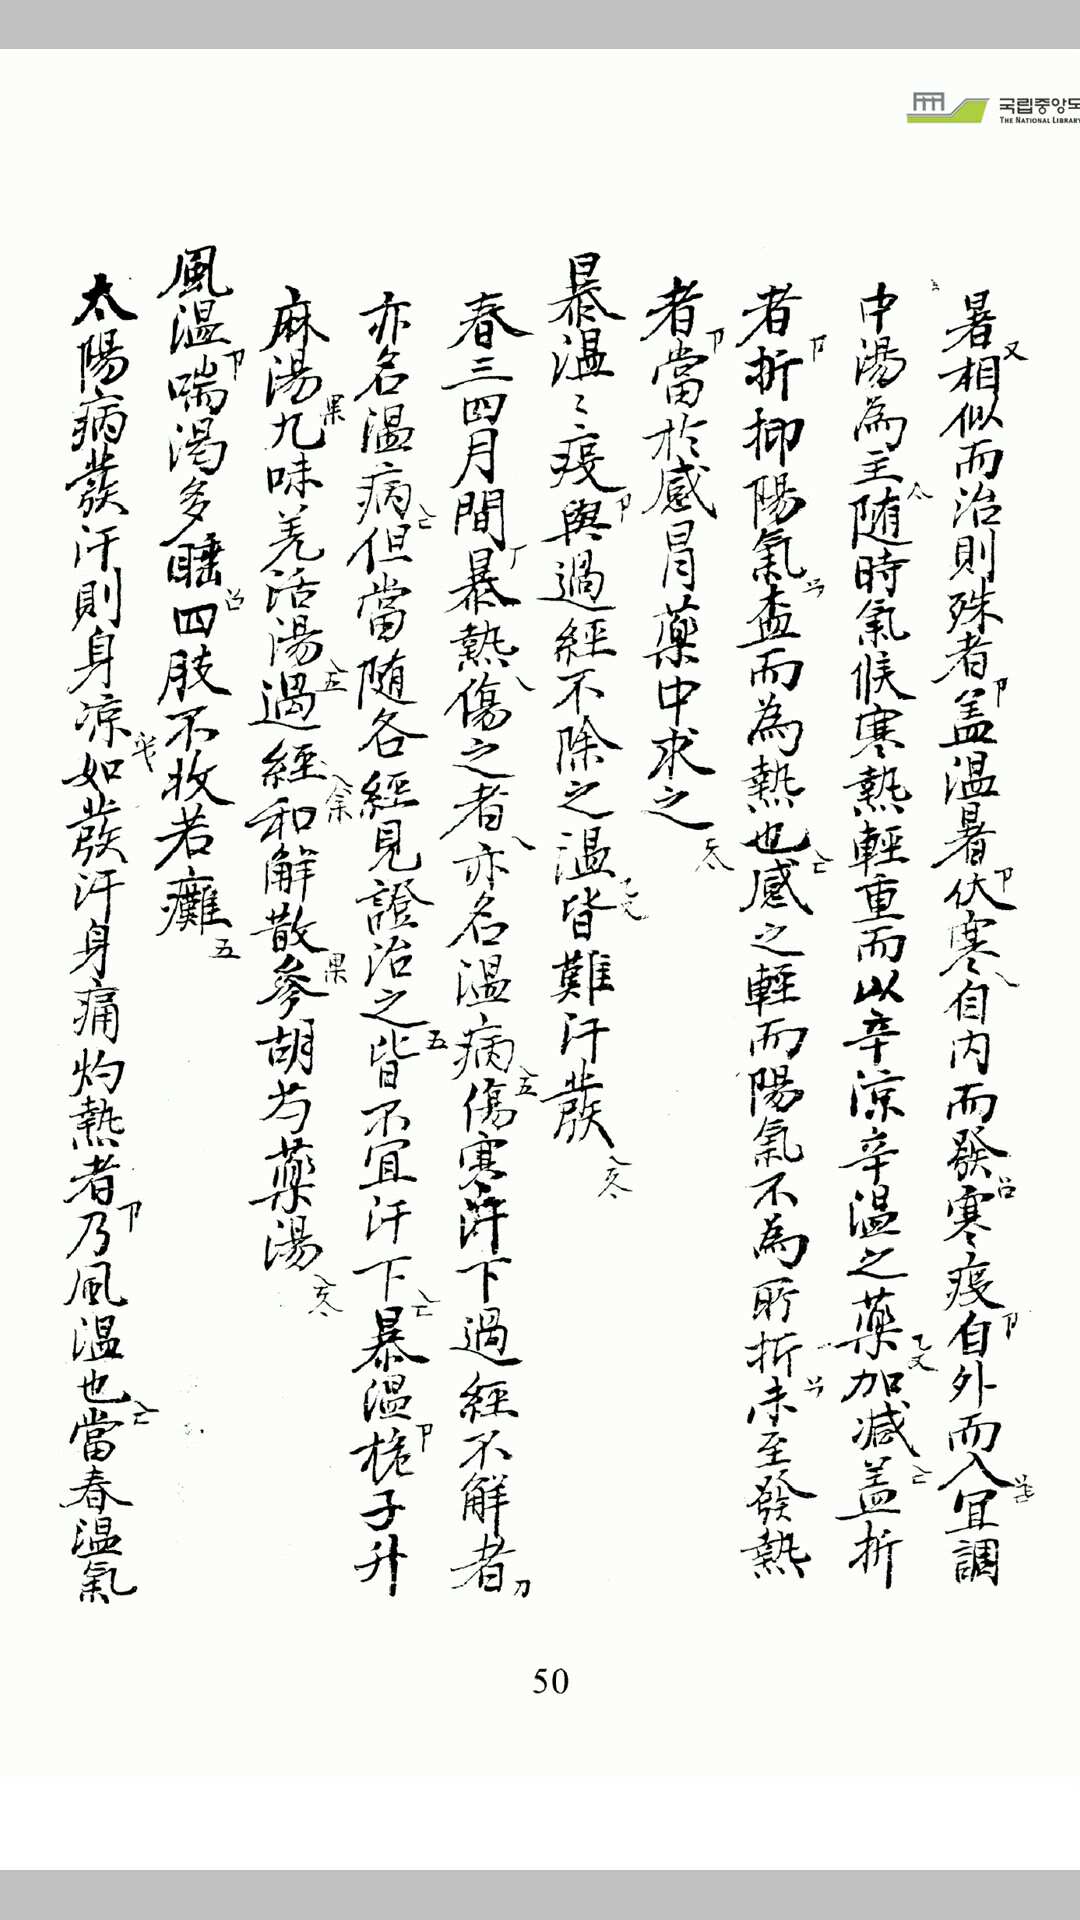 국립중앙도
THE NATIONAL LIBRARY
暑相似而治則殊者盖温暑伏寒自内而發寒疫自外而入宜調
中湯為主随時氣候寒熱輕重而以辛涼辛温之藥加减盖折
者折抑陽氣盍而為熱也感之輕而陽氣不為所折未至發熱
者當於感冒藥中求之
暴温〻疫與過經不除之温皆難汗發
春三四月間暴熱傷之者亦名温病傷寒汗下過經不解者
亦名温病但當随各經見證治之皆不宜汗下暴温梔子升
麻湯九味羌活湯過經和解散參胡芍藥湯
風温喘渴多睡四肢不收若癱
太陽病發汗則身凉如發汗身痛灼熱者乃風温也當春温氣
50